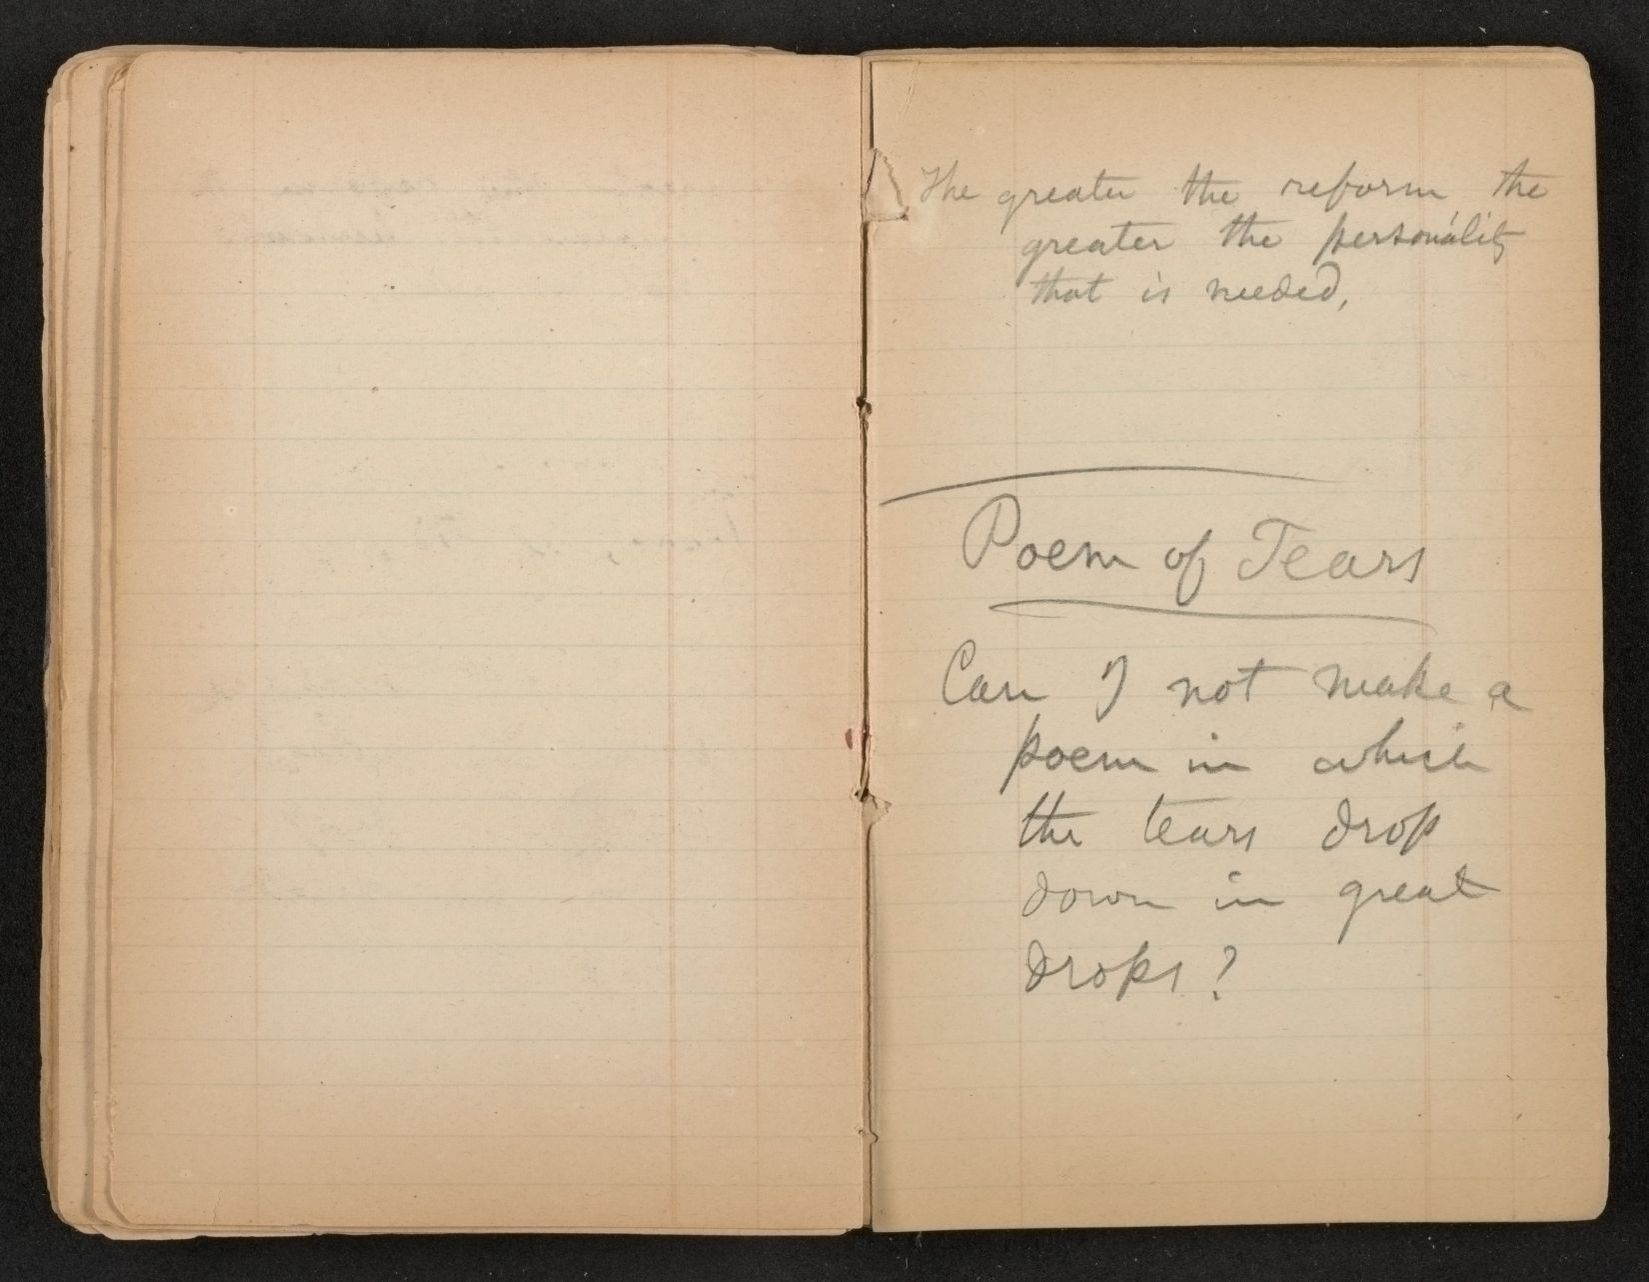 The greater the reform the
greater the personality
that is needed,
Poem of Tears
Can I not make a
poem in which
the tears drop
down in great
drops?